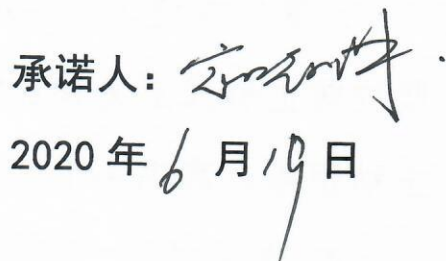 承诺人：
2020年6月19日